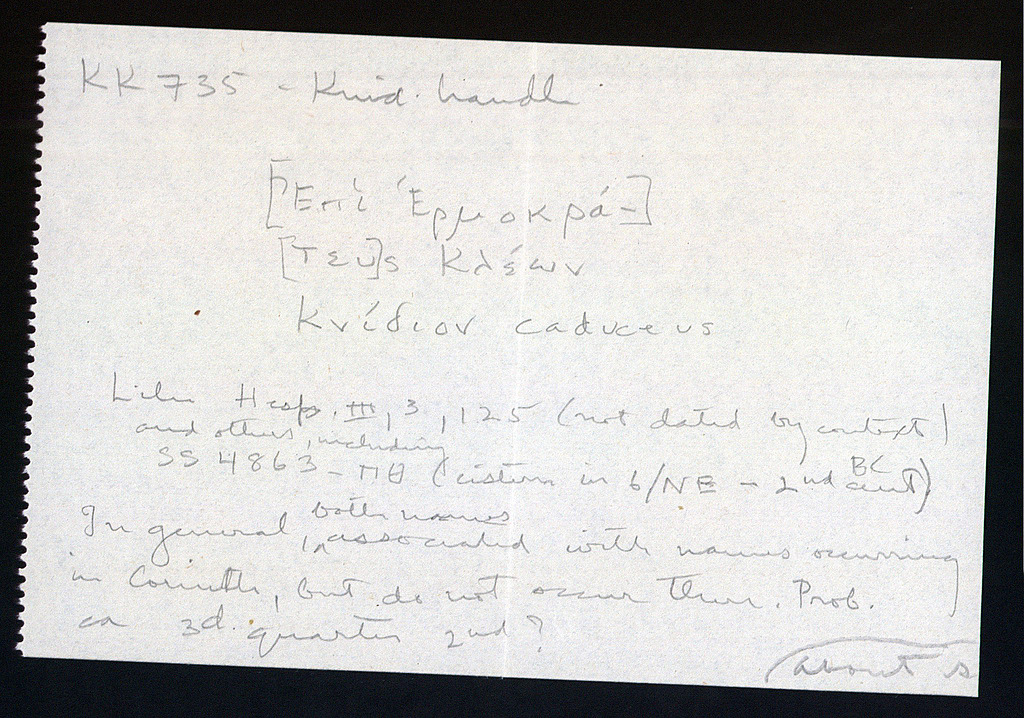 KK 735 - Knid. handle
[Ἐπὶ Ἑρμοκρά-]
[τευ]ς Κλέων
Κνίδιον caduceus
Like Hesp. III, 3, 125 (not dated by context)
and others, including
SS 4863 - ΠΘ (cistern in 6/NE - 2nd cent BC)
In general, both names associated with names occurring
in Corinth, but do not occur there. Prob.
ca 3d. quarter 2nd?
about s